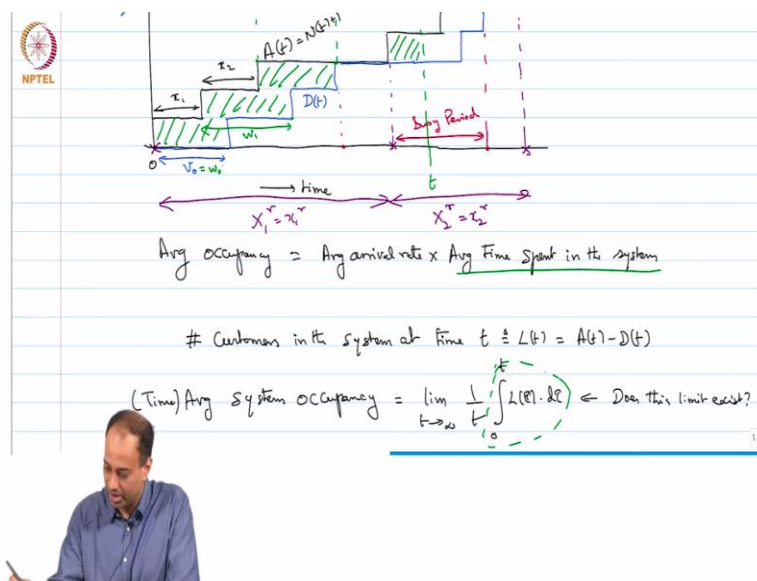 A(t) = N(t)+1
x₁
x₂
NPTEL
D(t)
w₁
Busy Period
0
V₀ = w₀
t
→ time
X₁ʳ = x₁ʳ
X₂ʳ = x₂ʳ
Avg occupancy = Avg arrival rate × Avg Time spent in the system
# Customers in the system at Time t ≜ L(t) = A(t) - D(t)
(Time) Avg System occupancy = lim t→∞ 1/t ∫₀ᵗ L(τ)·dτ ← Does this limit exist?